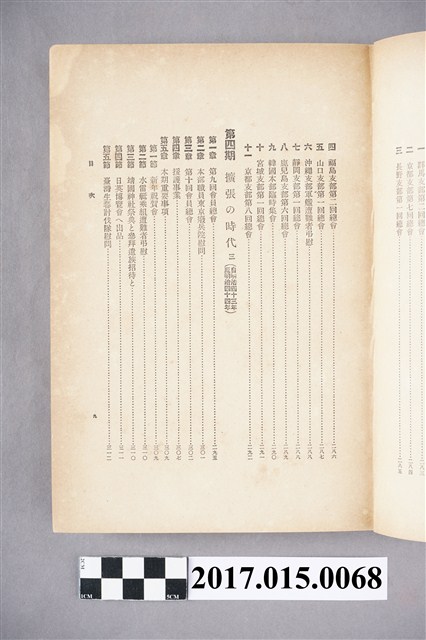 一 群馬支部第
二 京都支部第七回總會 二八四
三 長野支部第一回總會 二八五
四 福島支部第二回總會 二八六
五 山口支部第一回總會 二八七
六 沖繩支部軍艦遭難者弔慰 二八八
七 靜岡支部第一回總會 二八八
八 鹿兒島支部第六回總會 二八九
九 韓國本部臨時集會 二九〇
十 宮城支部第一回總會 二九一
十一 京都支部第八回總會 二九二
第四期 擴張の時代 三 (自明治四十三年 至明治四十四年)
第一章 第九回會員總會 二九五
第二章 本部職員東京癈兵院慰問 三〇一
第三章 第十回會員總會 三〇二
第四章 援護事業 三〇七
第五章 本期重要事項 三〇九
第一節 新年祝賀會 三〇九
第二節 水雷艇乘組遭難者弔慰 三一〇
第三節 靖國神社祭典と參拜遺族招待と 三一〇
第四節 日英博覽會へ出品 三一一
第五節 臺灣生蕃討伐隊慰問 三一二
目次
九
2CM
1CM
5CM
2017.015.0068